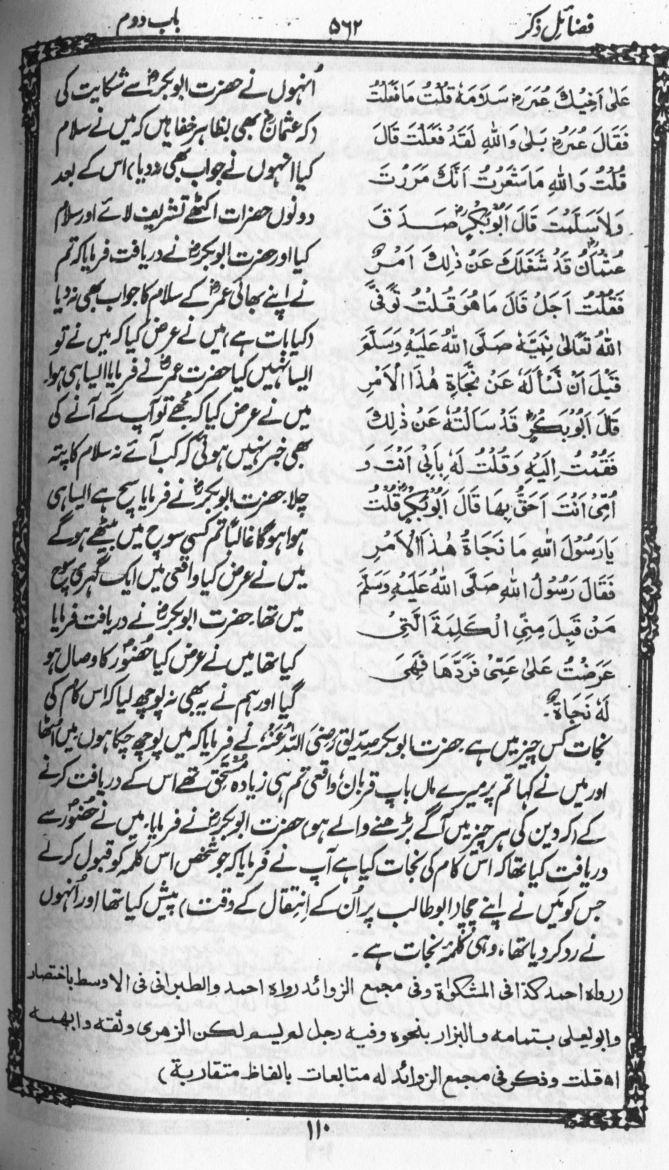 فضائل ذکر
۵۶۲
باب دوم
عَلٰى اَخِيْكَ عُمَرَؓ سَلَامَهٗ قُلْتُ مَا فَعَلْتُ
فَقَالَ عُمَرُؓ بَلٰى وَاللّٰهِ لَقَدْ فَعَلْتَ قَالَ
قُلْتُ وَاللّٰهِ مَا شَعَرْتُ اَنَّكَ مَرَرْتَ
وَلَا سَلَّمْتَ قَالَ اَبُوْبَكْرٍؓ صَدَقَ
عُثْمَانُؓ قَدْ شَغَلَكَ عَنْ ذٰلِكَ اَمْرٌ
فَقُلْتُ اَجَلْ قَالَ مَا هُوَ قُلْتُ تُوَفِّىَ
اللّٰهُ تَعَالٰى نَبِيَّهٗ صَلَّى اللّٰهُ عَلَيْهِ وَسَلَّمَ
قَبْلَ اَنْ نَسْأَلَهٗ عَنْ نَجَاةِ هٰذَا الْاَمْرِ
قَالَ اَبُوْبَكْرٍؓ قَدْ سَاَلْتُهٗ عَنْ ذٰلِكَ
فَقُمْتُ اِلَيْهِ وَقُلْتُ لَهٗ بِاَبِىْ اَنْتَ وَ
اُمِّىْ اَنْتَ اَحَقُّ بِهَا قَالَ اَبُوْبَكْرٍؓ قُلْتُ
يَا رَسُوْلَ اللّٰهِ مَا نَجَاةُ هٰذَا الْاَمْرِ
فَقَالَ رَسُوْلُ اللّٰهِ صَلَّى اللّٰهُ عَلَيْهِ وَسَلَّمَ
مَنْ قَبِلَ مِنِّى الْكَلِمَةَ الَّتِىْ
عَرَضْتُ عَلٰى عَمِّىْ فَرَدَّهَا فَهِىَ
لَهٗ نَجَاةٌ۔
اُنہوں نے حضرت ابوبکرؓ سے شکایت کی
(کہ عثمانؓ بھی بظاہر خفا ہیں کہ میں نے سلام
کیا انہوں نے جواب بھی نہ دیا) اس کے بعد
دونوں حضرات اکٹھے تشریف لائے اور سلام
کیا اور حضرت ابوبکرؓ نے دریافت فرمایا کہ تم
نے اپنے بھائی عمرؓ کے سلام کا جواب بھی نہ دیا
(کیا بات ہے) میں نے عرض کیا کہ میں نے تو
ایسا نہیں کیا حضرت عمرؓ نے فرمایا ایسا ہی ہوا۔
میں نے عرض کیا کہ مجھے تو آپ کے آنے کی
بھی خبر نہیں ہوئی کہ کب آئے نہ سلام کا پتہ
چلا۔ حضرت ابوبکرؓ نے فرمایا سچ ہے ایسا ہی
ہوا ہوگا غالباً تم کسی سوچ میں بیٹھے ہوگے
میں نے عرض کیا واقعی میں ایک گہری سوچ
میں تھا۔ حضرت ابوبکرؓ نے دریافت فرمایا
کیا تھا میں نے عرض کیا حضورؐ کا وصال ہو
گیا اور ہم نے یہ بھی نہ پوچھ لیا کہ اس کام کی
نجات کس چیز میں ہے۔ حضرت ابوبکر صدیق رضی اللہ عنہ نے فرمایا کہ میں پوچھ چکا ہوں میں اُٹھا
اور میں نے کہا تم پر میرے ماں باپ قربان، واقعی تم ہی زیادہ مستحق تھے اس کے دریافت کرنے
کے (کہ دین کی ہر چیز میں آگے بڑھنے والے ہو) حضرت ابوبکرؓ نے فرمایا، میں نے حضورؐ سے
دریافت کیا تھا کہ اس کام کی نجات کیا ہے آپ نے فرمایا کہ جو شخص اس کلمہ کو قبول کرلے
جس کو میں نے اپنے چچا (ابو طالب پر اُن کے انتقال کے وقت) پیش کیا تھا اور اُنہوں
نے رد کر دیا تھا، وہی کلمۂ نجات ہے۔
(رواه احمد كذا فى المشكوة وفى مجمع الزوائد رواه احمد والطبرانى فى الاوسط باختصار
وابو يعلى بتمامه والبزار بنحوه وفيه رجل لم يسم لكن الزهرى وثقه وابهمه
اھ قلت وذكر فى مجمع الزوائد له متابعات بالفاظ متقاربة)
۱۱۰